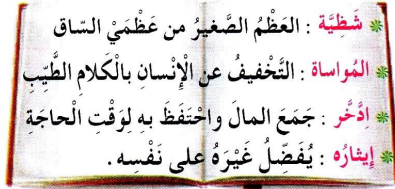 شَظِيَّة : العَظْمُ الصَّغيرُ من عَظْمَيْ السّاق
المُواساة : التَّخْفيفُ عن الْإِنْسانِ بالْكَلامِ الطَّيِّبِ
اِدَّخَر : جَمَعَ المالَ واحْتَفَظَ به لِوَقْتِ الحاجَةِ
إيثارُه : يُفَضِّلُ غَيْرَهُ على نَفْسِه .